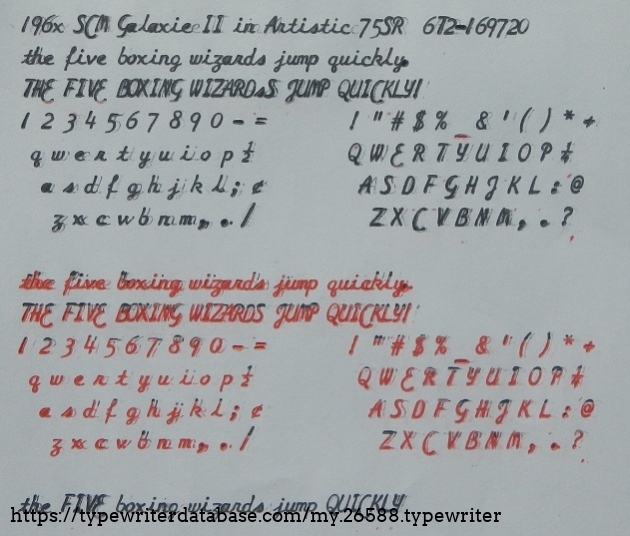 196x SCM Galaxie II in Artistic 75SR 6T2-169720
the five boxing wizards jump quickly.
THE FIVE BOXING WIZARDS JUMP QUICKLY!
1 2 3 4 5 6 7 8 9 0 - = ! " # $ % _ & ' ( ) * +
q w e r t y u i o p ½ Q W E R T Y U I O P ¼
a s d f g h j k l ; ¢ A S D F G H J K L : @
z x c v b n m , . / Z X C V B N M , . ?
the five boxing wizards jump quickly.
THE FIVE BOXING WIZARDS JUMP QUICKLY!
1 2 3 4 5 6 7 8 9 0 - = ! " # $ % _ & ' ( ) * +
q w e r t y u i o p ½ Q W E R T Y U I O P ¼
a s d f g h j k l ; ¢ A S D F G H J K L : @
z x c v b n m , . / Z X C V B N M , . ?
the FIVE boxing wizards jump QUICKLY
https://typewriterdatabase.com/my.26588.typewriter